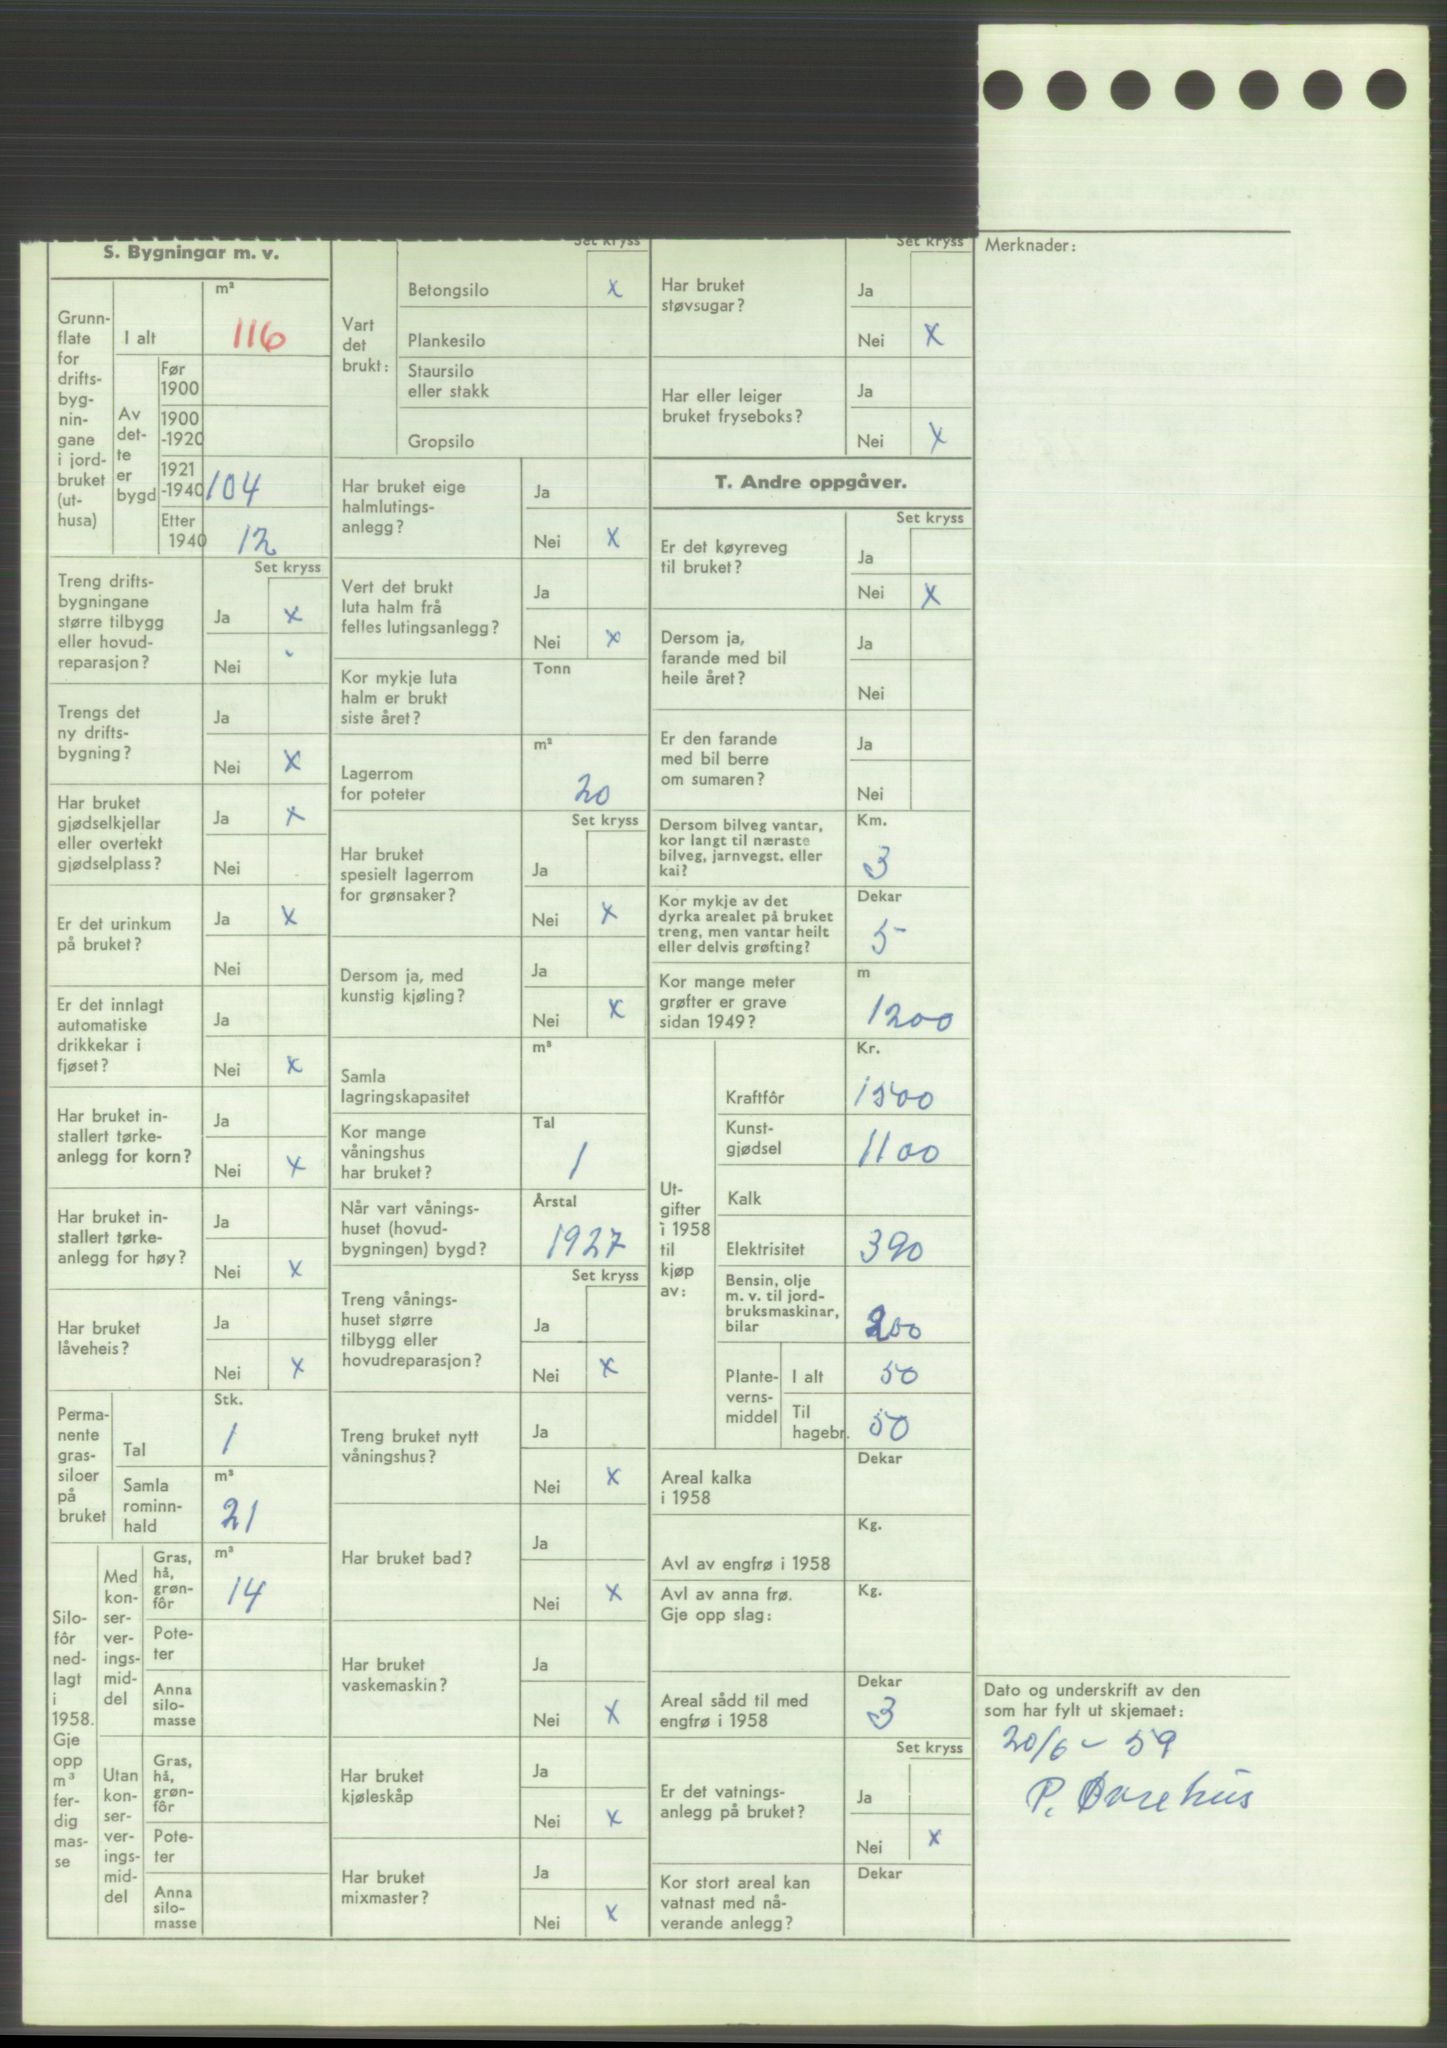 S. Bygningar m. v.
Grunn-
flate
for
drifts-
byg-
nin-
gane
i jord-
bruket
(ut-
husa)
I alt
m²
116
Av
det-
te
er
bygd
Før
1900
1900
-1920
1921
-1940
104
Etter
1940
12
Set kryss
Treng drifts-
bygningane
større tilbygg
eller hovud-
reparasjon?
Ja x
Nei
Trengs det
ny drifts-
bygning?
Ja
Nei x
Har bruket
gjødselkjellar
eller overtekt
gjødselplass?
Ja x
Nei
Er det urinkum
på bruket?
Ja x
Nei
Er det innlagt
automatiske
drikkekar i
fjøset?
Ja
Nei x
Har bruket in-
stallert tørke-
anlegg for korn?
Ja
Nei x
Har bruket in-
stallert tørke-
anlegg for høy?
Ja
Nei x
Har bruket
låveheis?
Ja
Nei x
Perma-
nente
gras-
siloer
på
bruket
Stk.
Tal
1
Samla
rominn-
hald
m³
21
Silo-
fôr
ned-
lagt
i
1958.
Gje
opp
m³
fer-
dig
mas-
se
Med
kon-
ser-
ver-
ings-
mid-
del
Gras,
hå,
grøn-
fôr
m³
14
Pote-
ter
Anna
silo-
masse
Utan
kon-
ser-
ver-
ings-
mid-
del
Gras,
hå,
grøn-
fôr
Pote-
ter
Anna
silo-
masse
Set kryss
Vart
det
brukt:
Betongsilo x
Plankesilo
Staursilo
eller stakk
Gropsilo
Har bruket eige
halmlutings-
anlegg?
Ja
Nei x
Vert det brukt
luta halm frå
felles lutingsanlegg?
Ja
Nei x
Kor mykje luta
halm er brukt
siste året?
Tonn
Lagerrom
for poteter
m²
20
Set kryss
Har bruket
spesielt lagerrom
for grønsaker?
Ja
Nei x
Dersom ja, med
kunstig kjøling?
Ja
Nei x
Samla
lagringskapasitet
m³
Kor mange
våningshus
har bruket?
Tal
1
Når vart vånings-
huset (hovud-
bygningen) bygd?
Årstal
1927
Set kryss
Treng vånings-
huset større
tilbygg eller
hovudreparasjon?
Ja
Nei x
Treng bruket nytt
våningshus?
Ja
Nei x
Har bruket bad?
Ja
Nei x
Har bruket
vaskemaskin?
Ja
Nei x
Har bruket
kjøleskåp
Ja
Nei x
Har bruket
mixmaster?
Ja
Nei x
Set kryss
Har bruket
støvsugar?
Ja
Nei x
Har eller leiger
bruket fryseboks?
Ja
Nei x
T. Andre oppgåver.
Set kryss
Er det køyreveg
til bruket?
Ja
Nei x
Dersom ja,
farande med bil
heile året?
Ja
Nei
Er den farande
med bil berre
om sumaren?
Ja
Nei
Dersom bilveg vantar,
kor langt til næraste
bilveg, jarnvegst. eller
kai?
Km.
3
Kor mykje av det
dyrka arealet på bruket
treng, men vantar heilt
eller delvis grøfting?
Dekar
5
Kor mange meter
grøfter er grave
sidan 1949?
m
1200
Ut-
gifter
i 1958
til
kjøp
av:
Kr.
Kraftfôr
1500
Kunst-
gjødsel
1100
Kalk
Elektrisitet
390
Bensin, olje
m. v. til jord-
bruksmaskinar,
bilar
200
Plante-
verns-
middel
I alt
50
Til
hagebr.
50
Areal kalka
i 1958
Dekar
Avl av engfrø i 1958
Kg.
Avl av anna frø.
Gje opp slag:
Kg.
Areal sådd til med
engfrø i 1958
Dekar
3
Set kryss
Er det vatnings-
anlegg på bruket?
Ja
Nei x
Kor stort areal kan
vatnast med nå-
verande anlegg?
Dekar
Merknader:
Dato og underskrift av den
som har fylt ut skjemaet:
20/6 - 59
P. Øvrehus